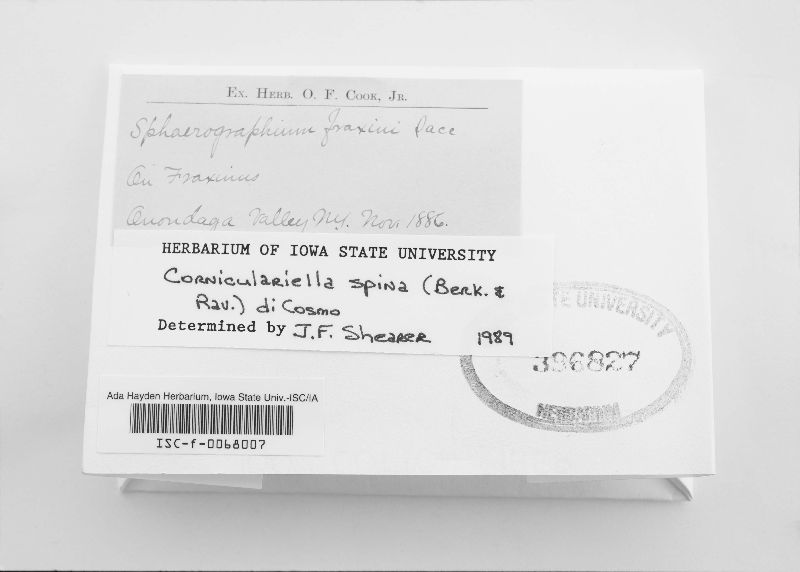 Ex. Herb. O. F. Cook, Jr.
Sphaerographium fraxini Sacc
On Fraxinus
Onondaga Valley NY. Nov. 1886.
HERBARIUM OF IOWA STATE UNIVERSITY
Corniculariella spina (Berk. &
Rav.) di Cosmo
Determined by J.F. Shearer 1989
STATE UNIVERSITY
396827
HERBARIUM
Ada Hayden Herbarium, Iowa State Univ.-ISC/IA
ISC-f-0068007